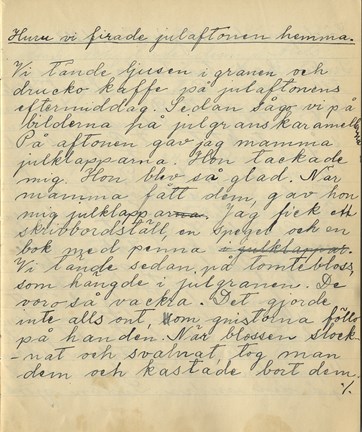 Huru vi firade julaftonen hemma.
Vi tände ljusen i granen och
drucko kaffe på julaftonens
eftermiddag. Sedan sågo vi på
bilderna på julgranskaramellerna
På aftonen gav jag mamma
julklapparna. Hon tackade
mig. Hon blev så glad. När
mamma fått dem, gav hon
mig julklapparna. Jag fick ett
skrivbordställ, en spegel och en
bok med penna i julklappar.
Vi tände sedan på tomtebloss,
som hängde i julgranen. De
voro så vackra. Det gjorde
inte alls ont, om gnistorna föllo
på handen. När blossen slock-
-nat och svalnat, tog man
dem och kastade bort dem.
·/.